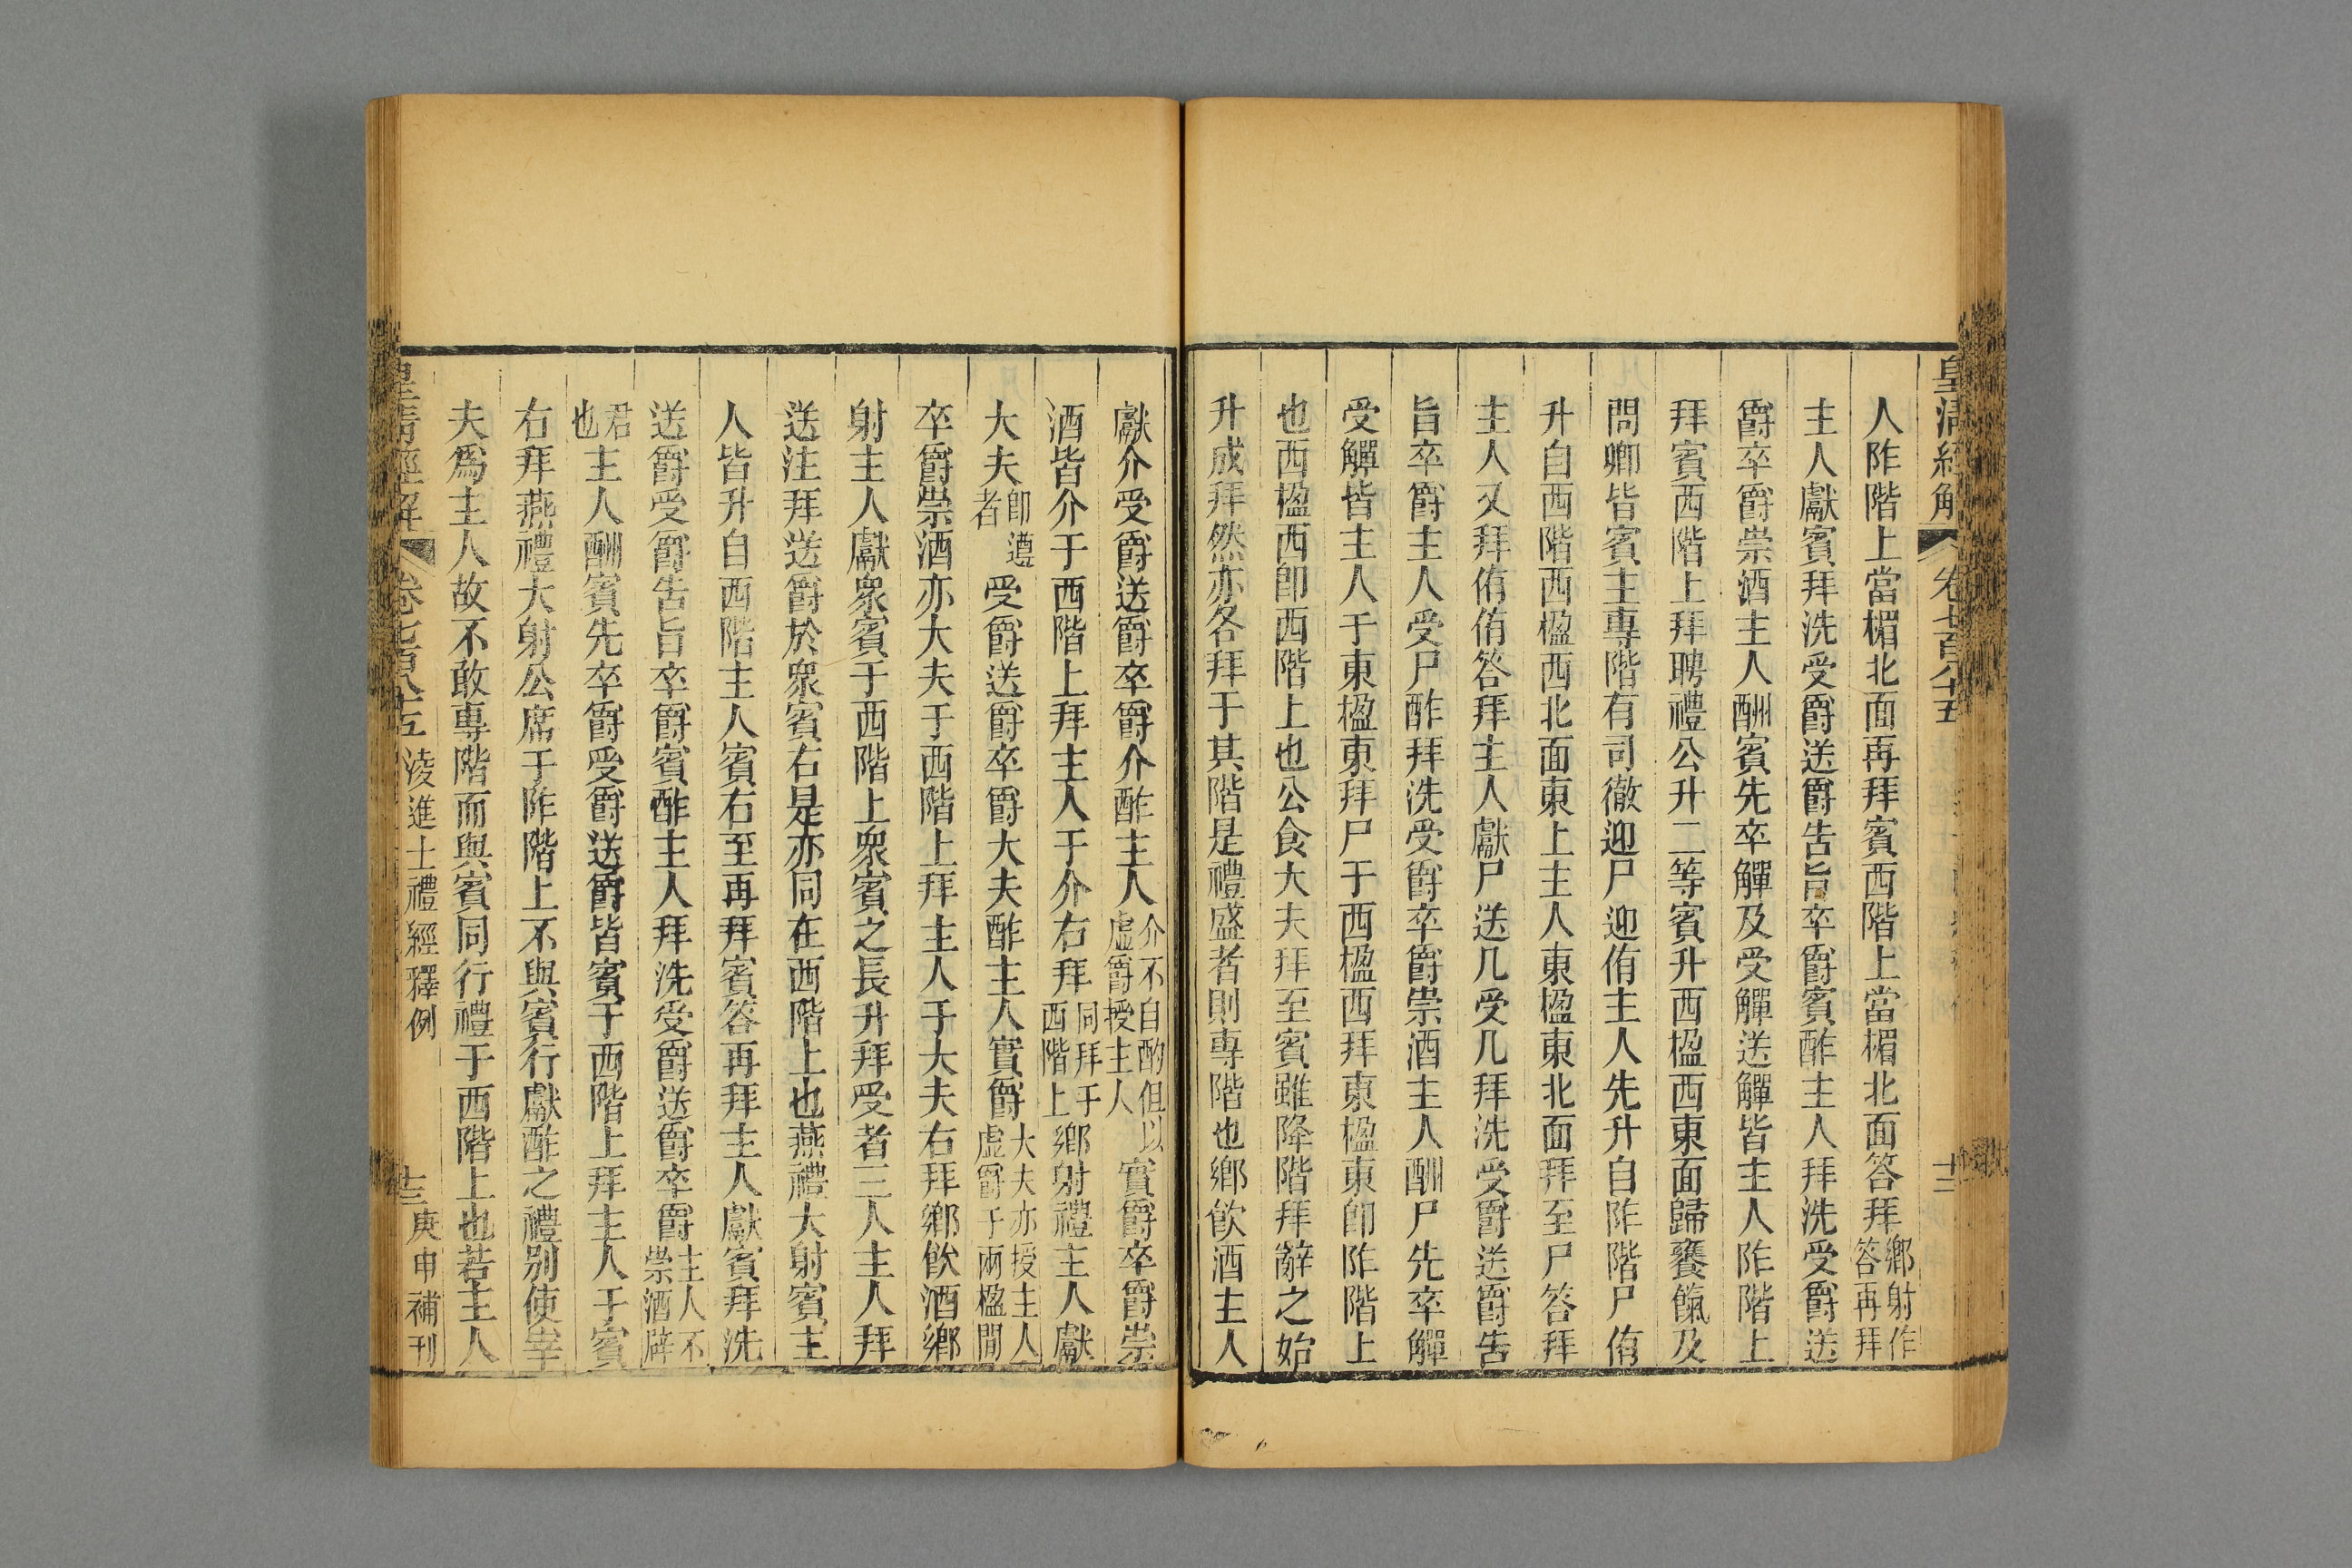 皇清經解 卷七百八十五 十二
人阼階上當楣北面再拜賓西階上當楣北面答拜鄉射作答再拜
主人獻賓拜洗受爵送爵告旨卒爵賓酢主人拜洗受爵送
爵卒爵崇酒主人酬賓先卒觶及受觶送觶皆主人阼階上
拜賓西階上拜聘禮公升二等賓升西楹西東面歸饔餼及
問卿皆賓主專階有司徹迎尸迎侑主人先升自阼階尸侑
升自西階西楹西北面東上主人東楹東北面拜至尸答拜
主人又拜侑侑答拜主人獻尸送几受几拜洗受爵送爵告
旨卒爵主人受尸酢拜洗受爵卒爵崇酒主人酬尸先卒觶
受觶皆主人于東楹東拜尸于西楹西拜東楹東卽阼階上
也西楹西卽西階上也公食大夫拜至賓雖降階拜辭之始
升成拜然亦各拜于其階是禮盛者則專階也鄉飲酒主人
獻介受爵送爵卒爵介酢主人介不自酌但以虛爵授主人實爵卒爵崇
酒皆介于西階上拜主人于介右拜同拜于西階上鄉射禮主人獻
大夫卽遵者受爵送爵卒爵大夫酢主人實爵大夫亦授主人虛爵于兩楹閒
卒爵崇酒亦大夫于西階上拜主人于大夫右拜鄉飲酒鄉
射主人獻眾賓于西階上眾賓之長升拜受者三人主人拜
送注拜送爵於眾賓右是亦同在西階上也燕禮大射賓主
人皆升自西階主人賓右至再拜賓答再拜主人獻賓拜洗
送爵受爵告旨卒爵賓酢主人拜洗受爵送爵卒爵主人不崇酒辟
君也主人酬賓先卒爵受爵送爵皆賓于西階上拜主人于賓
右拜燕禮大射公席于阼階上不與賓行獻酢之禮別使宰
夫爲主人故不敢專階而與賓同行禮于西階上也若主人
皇清經解 卷七百八十五 淩進士禮經釋例 十三 庚申補刊